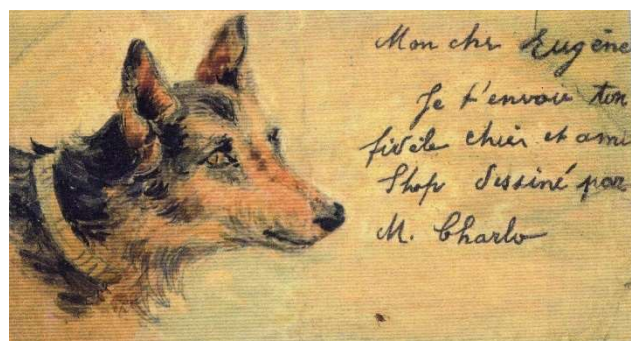 Mon chr Eugène
Je t'envoie ton
fidèle chien et ami
Shop dessiné par
M. Charlo